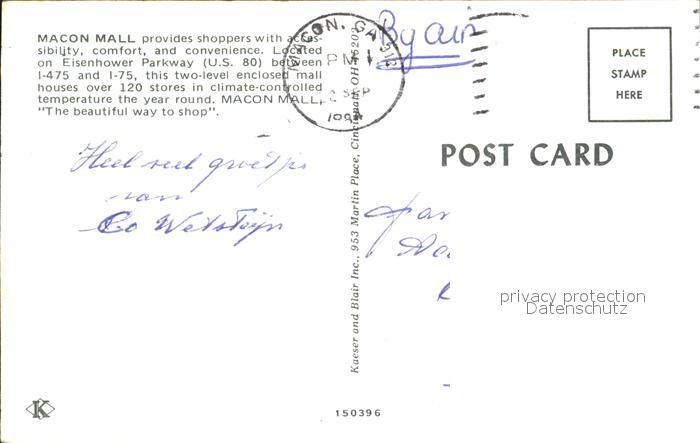 MACON MALL provides shoppers with acces-
sibility, comfort, and convenience. Located
on Eisenhower Parkway (U.S. 80) between
I-475 and I-75, this two-level enclosed mall
houses over 120 stores in climate-controlled
temperature the year round. MACON MALL,
"The beautiful way to shop".
MACON, GA 312
PM
2 SEP
By air
PLACE
STAMP
HERE
POST CARD
Heel veel groetjes
van
Co Wetsteijn
Kaeser and Blair Inc., 953 Martin Place, Cincinnati, OH 45202
privacy protection
Datenschutz
K
150396